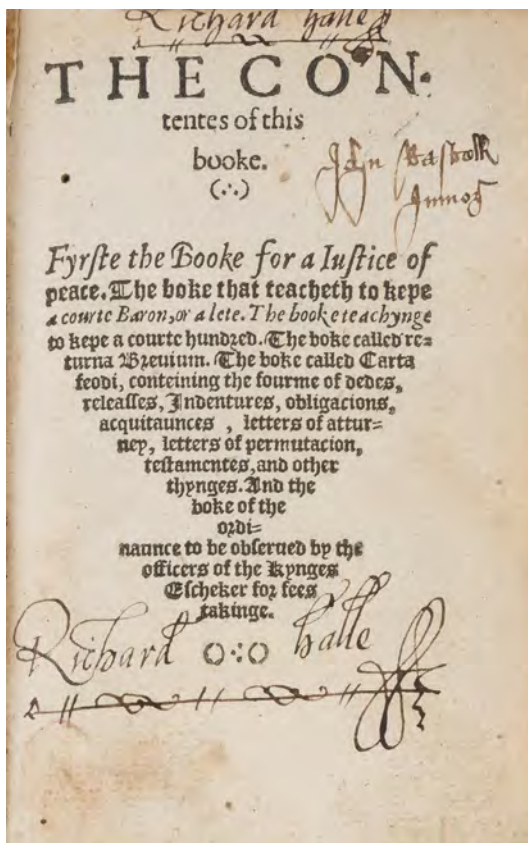 Richard halle
THE CON-
tentes of this
booke.
(∴)
Fyrſte the Booke for a Iuſtice of
peace. The boke that teacheth to kepe
a courte Baron, or a lete. The booke teachynge
to kepe a courte hundred. The boke called re=
turna Breuium. The boke called Carta
feodi, conteining the fourme of dedes,
releaſſes, Indentures, obligacions,
acquitaunces , letters of attur=
ney, letters of permutacion,
teſtamentes, and other
thynges. And the
boke of the
ordi=
naunce to be obſerued by the
officers of the Kynges
Eſcheker for fees
takinge.
Richard halle